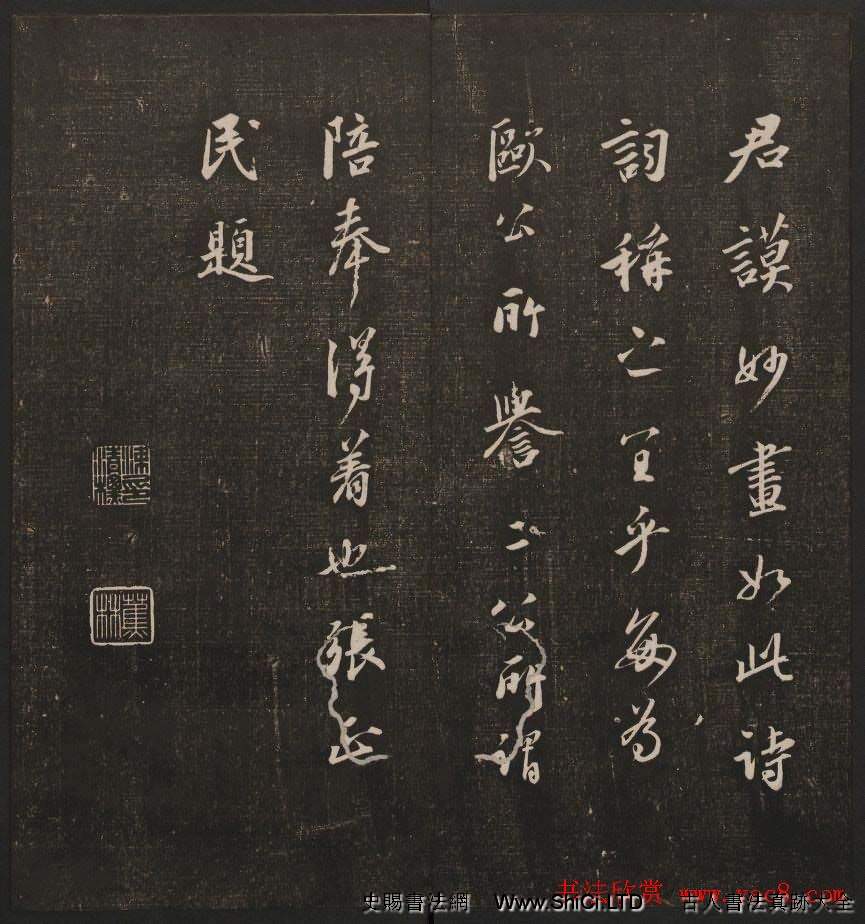 君謨妙畫如此詩
詞稱之宜乎每為
歐公所譽二公所謂
陪奉得着也張正
民題
蕉林
书法欣赏 www.yac8.com
史賜書法網 Www.ShiCi.LTD 古人書法真跡大全